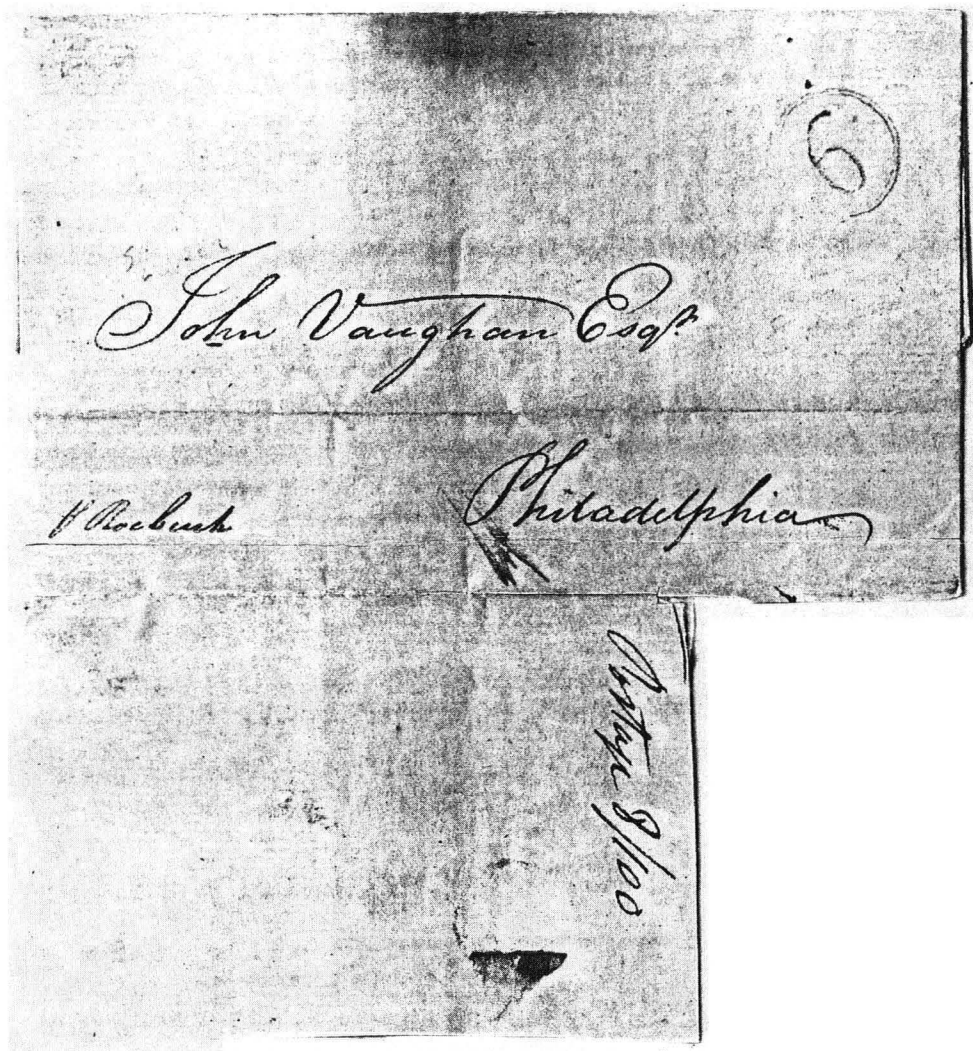 6
John Vaughan Esqr.
Philadelphia
p Roebuck
Postage 8/100